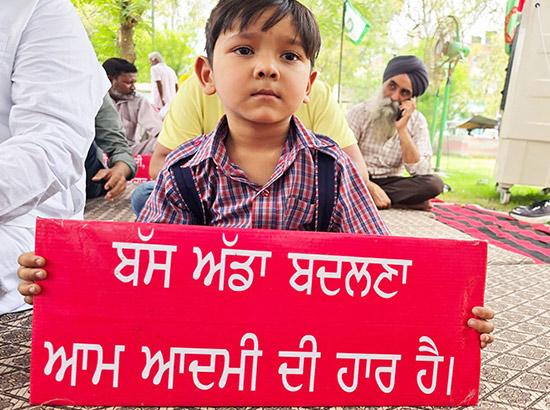 ਬੱਸ ਅੱਡਾ ਬਦਲਣਾ
ਆਮ ਆਦਮੀ ਦੀ ਹਾਰ ਹੈ।